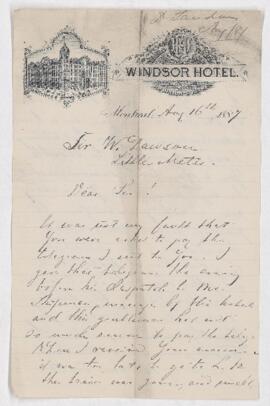 WINDSOR HOTEL.
Montreal, Aug 16th 1887
Sir W. Dawson
Little Metis.
Dear Sir!
It was not my fault that
You were asked to pay the
telegram I sent to You. I
gave that telegram the evening
before his dispatch to Mr.
manager of this hotel
and this gentleman had not
so much reason to pay the
When I received Your answer
it was too late to go to L. M.
the train was gone, and